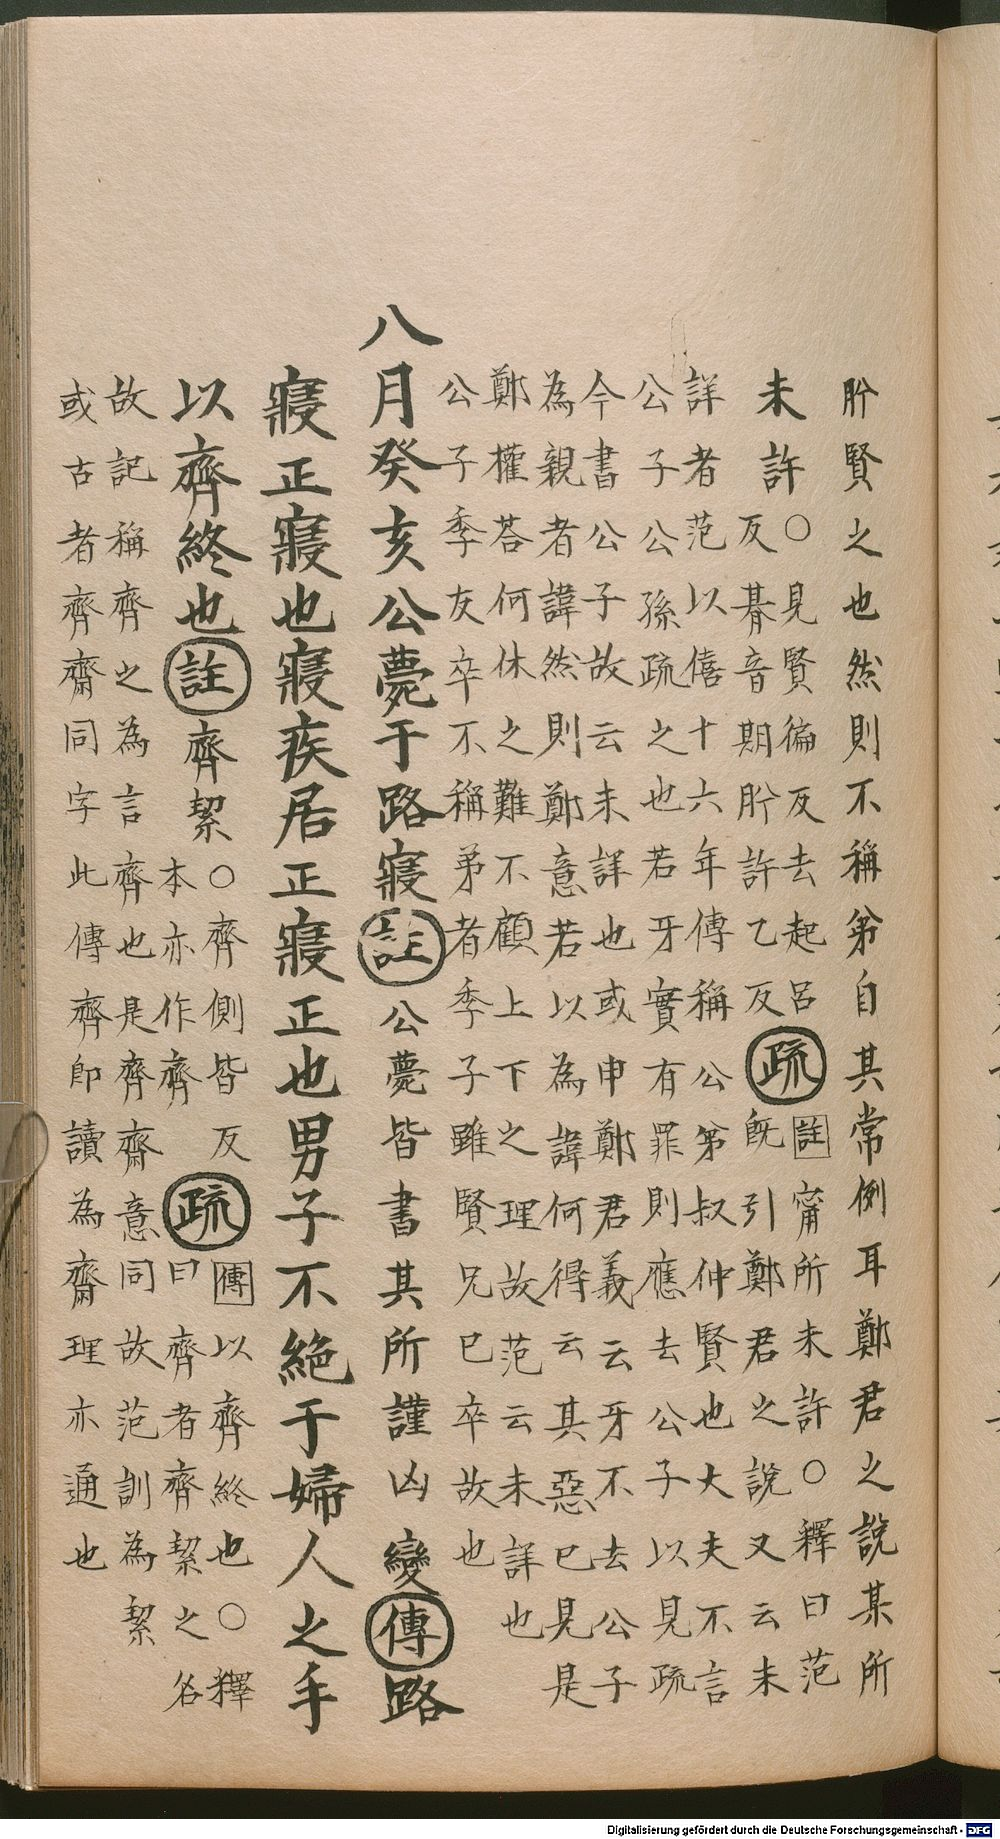 肸賢之也然則不稱弟自其常例耳鄭君之說某所
未許
○見賢徧反去起呂
反朞音期肸許乙反
疏
註甯所未許○釋曰范
既引鄭君之說又云未
詳者范以僖十六年傳稱公弟叔仲賢也大夫不言
公子公孫疏之也若牙實有罪則應去公子以見疏
今書公子故云未詳也或申鄭君義云牙不去公子
為親者諱然則鄭意若以為諱何得云其惡已見是
鄭權荅何休之難不顧上下之理故范云未詳也
公子季友卒不稱弟者季子雖賢兄已卒故也
八月癸亥公薨于路寢註公薨皆書其所謹凶變傳路
寢正寢也寢疾居正寢正也男子不絕于婦人之手
以齊終也註齊絜
○齊側皆反
本亦作齊
疏
傳以齊終也○釋
曰齊者齊絜之名
故記稱齊之為言齊也是齊齋意同故范訓為絜
或古者齊齋同字此傳齊即讀為齋理亦通也
Digitalisierung gefördert durch die Deutsche Forschungsgemeinschaft - DFG